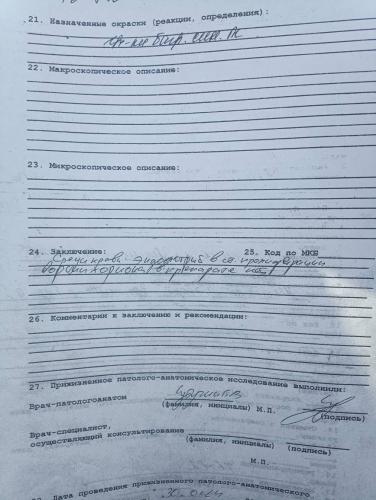 21. Назначенные окраски (реакции, определения):
22. Макроскопическое описание:
23. Микроскопическое описание:
24. Заключение: 25. Код по МКБ
Среди крови эндометрий в ст. пролиферации
ворсин хориона в препарате нет
26. Комментарии к заключению и рекомендации:
27. Прижизненное патолого-анатомическое исследование выполнили:
Врач-патологоанатом
(фамилия, инициалы) М.П. (подпись)
Врач-специалист,
осуществляющий консультирование
(фамилия, инициалы) (подпись)
М.П.
Дата проведения прижизненного патолого-анатомического